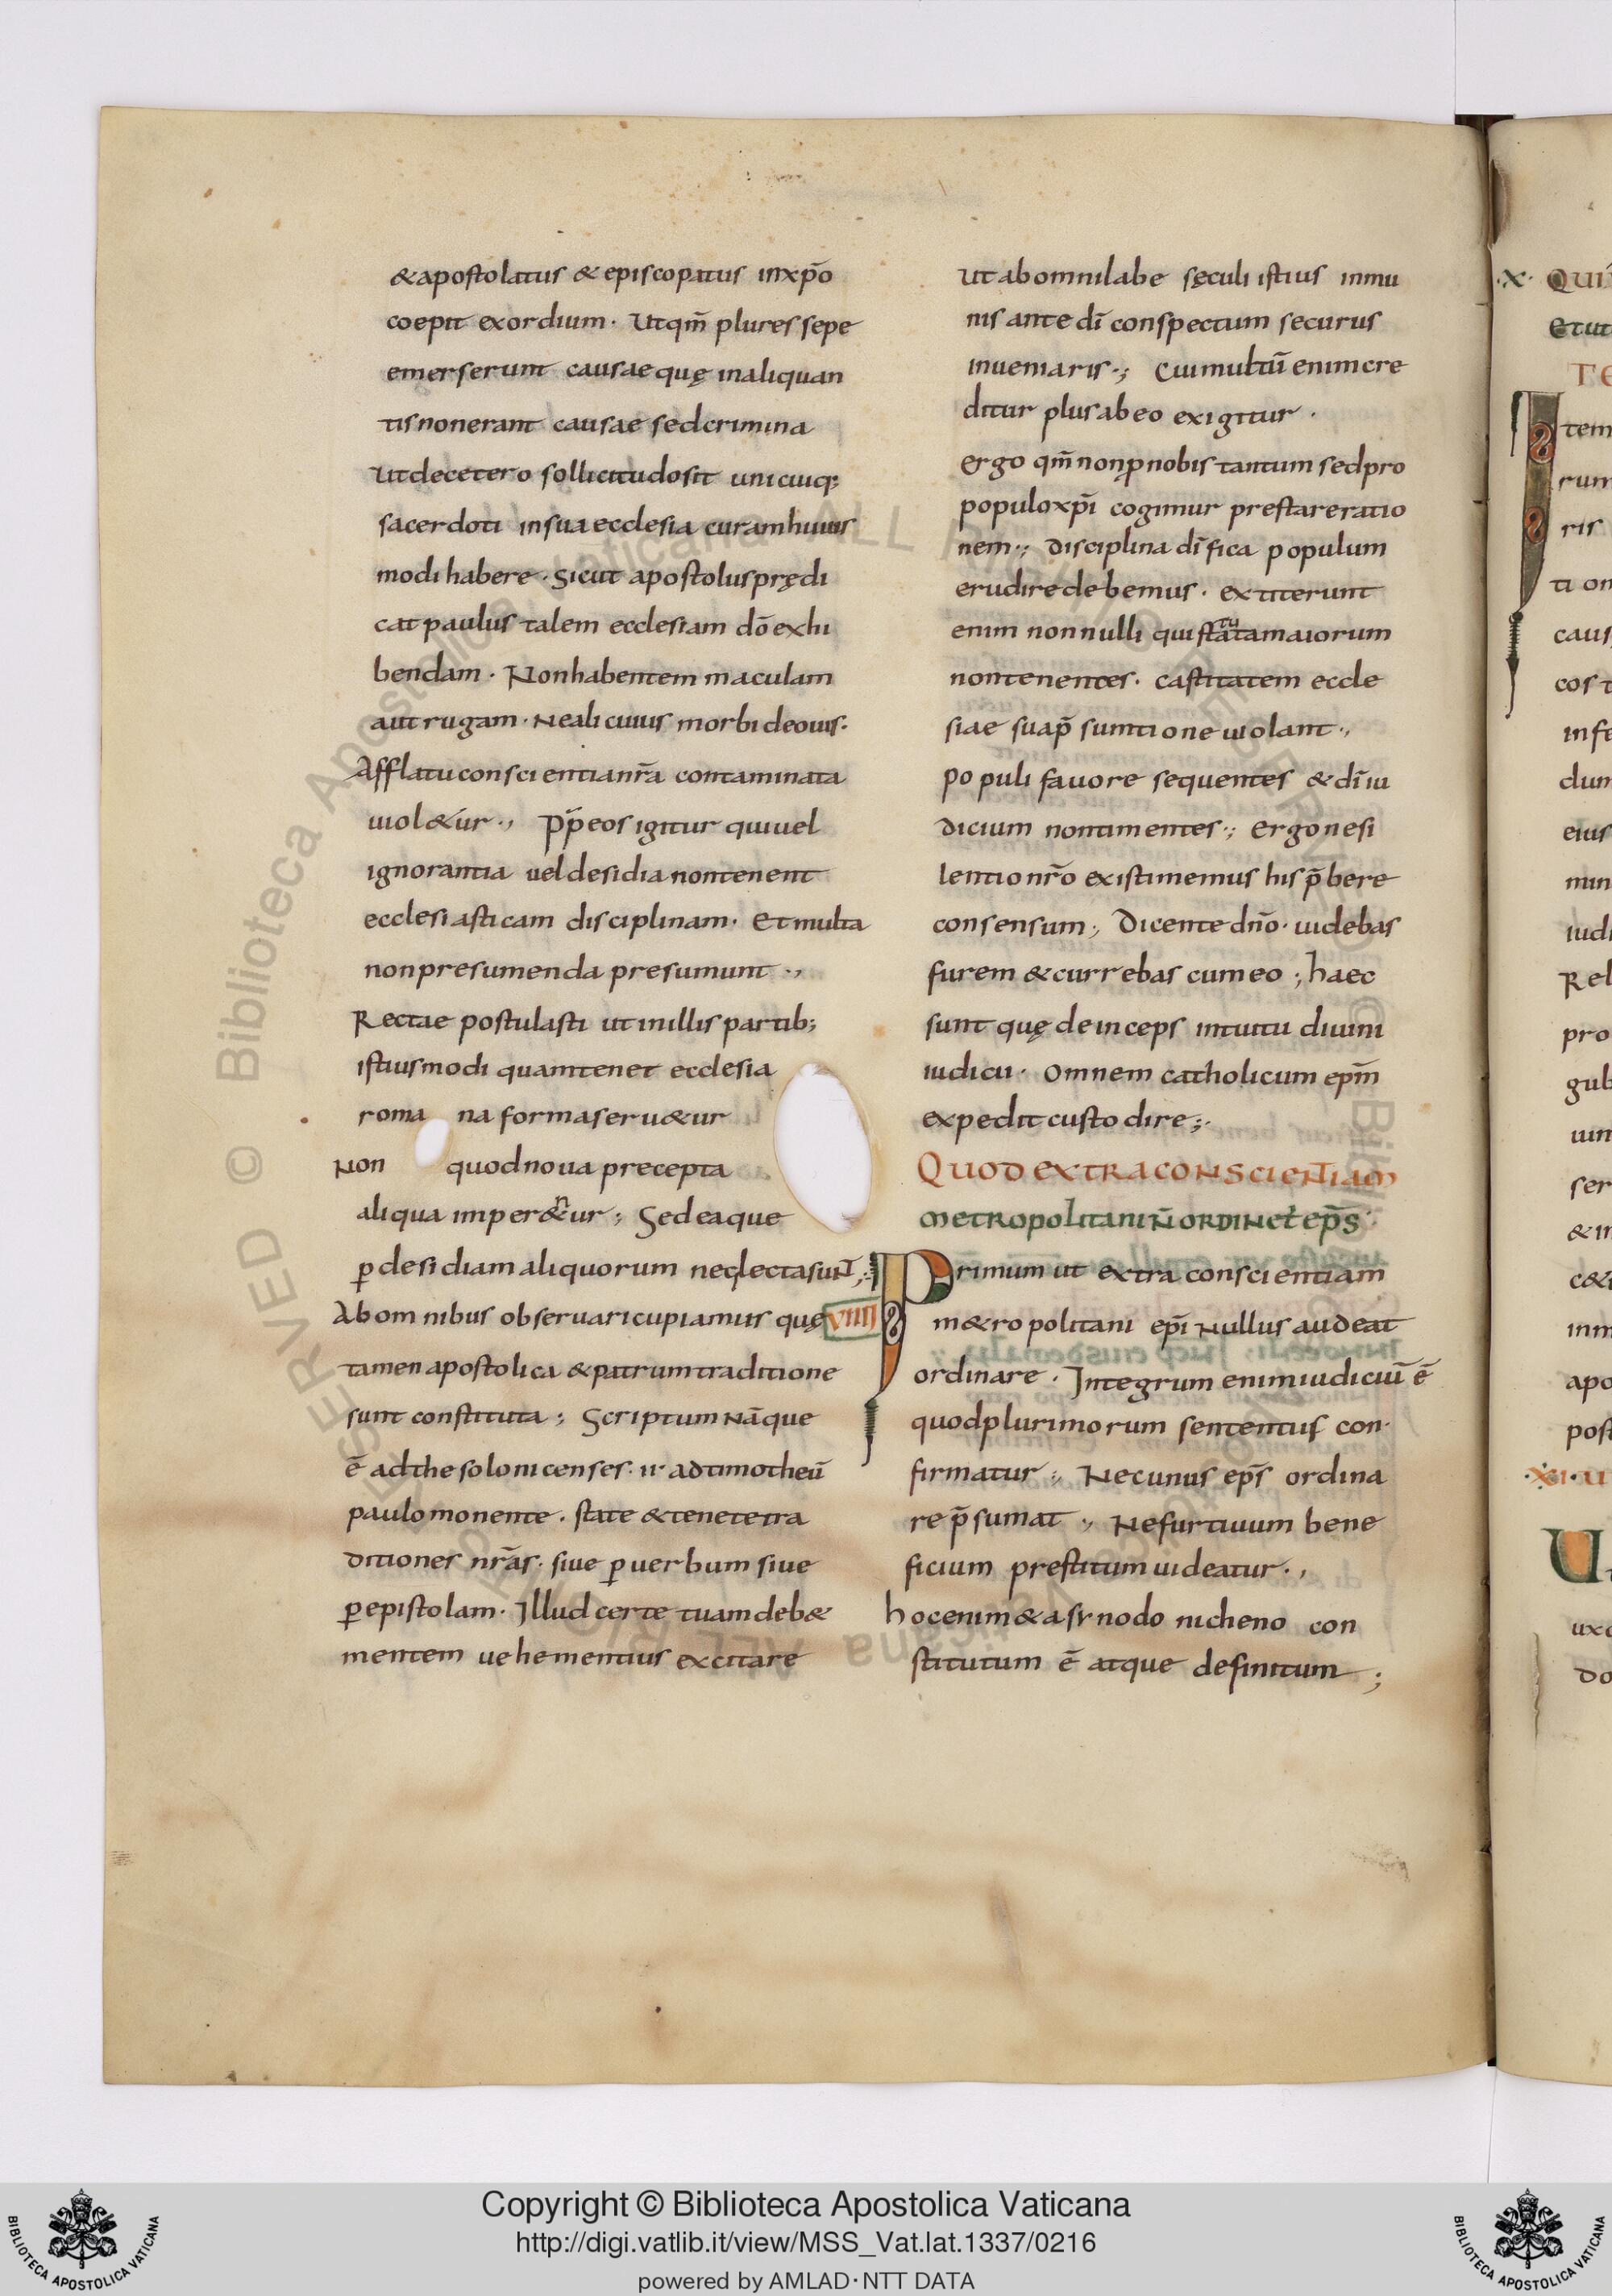 & apostolatus & episcopatus in xp̄o
coepit exordium · Ut qm̄ plures sepe
emerserunt causae quę in aliquan
tis non erant causae sed crimina
Ut de cetero sollicitudo sit unicuiq;
sacerdoti in sua ecclesia curam huius
modi habere · Sicut apostolus prędi
cat paulus talem ecclesiam dō exhi
bendam · Non habentem maculam
aut rugam · Ne alicuius morbide ouis ·
Afflatu conscientia nr̄a contaminata
uiol&ur ·, Pp̄ eos igitur qui uel
ignorantia uel desidia non tenent
ecclesiasticam disciplinam · Et multa
non presumenda presumunt ·,
Rectae postulasti ut in illis partib;
istiusmodi quam tenet ecclesia
romana forma seru&ur
Non quod noua precepta
aliqua imper&ⁿur ; Sed ea que
p̱ desidiam aliquorum neglecta sunt ;
Ab omnibus obseruari cupiamus quę
tamen apostolica & patrum traditione
sunt constituta ; Scriptum nāque
ē ad thesolonicenses · ii · ad timotheū
paulo monente · state & tenete tra
ditiones nr̄as · siue p̱ uerbum siue
p̱ epistolam · Illud certe tuam deb&
mentem uehementius excitare
Ut ab omni labe sęculi istius inmu
nis ante dī conspectum securus
inueniaris ·; Cui multū enim cre
ditur plus ab eo exigitur ·
ergo qm̄ non p̱ nobis tantum sed pro
populo xp̄i cogimur prestare ratio
nem ·; Disciplina dīfica populum
erudire debemus · extiterunt
enim nonnulli qui statᵗᵘta maiorum
non tenentes · castitatem eccle
siae sua p̄sumtione uiolant ·,
Populi fauore sequentes & dī iu
dicium non timentes ·; Ergo ne si
lentio nr̄o existimemus his p̄bere
consensum ; Dicente dn̄o · uidebas
furem & currebas cum eo ; haec
sunt quę deinceps intuitu diuini
iudicii · Omnem catholicum ep̄m
expedit custodire ;·
QUOD EXTRA CONSCIENTIAM
METROPOLITANI N̄ ORDINET EP̄S
VIIII
Primum ut extra conscientiam
m&ropolitani ep̄i Nullus audeat
ordinare · Integrum enim iudiciū ē
quod plurimorum sententiis con ·
firmatur ; Nec unus ep̄s ordina
re p̄sumat ·, Ne furtiuum bene
ficium prestitum uideatur ·,
hoc enim & a synodo nicheno con
stitutum ē atque definitum ;
Copyright © Biblioteca Apostolica Vaticana
http://digi.vatlib.it/view/MSS_Vat.lat.1337/0216
powered by AMLAD·NTT DATA
BIBLIOTECA APOSTOLICA VATICANA
BIBLIOTECA APOSTOLICA VATICANA